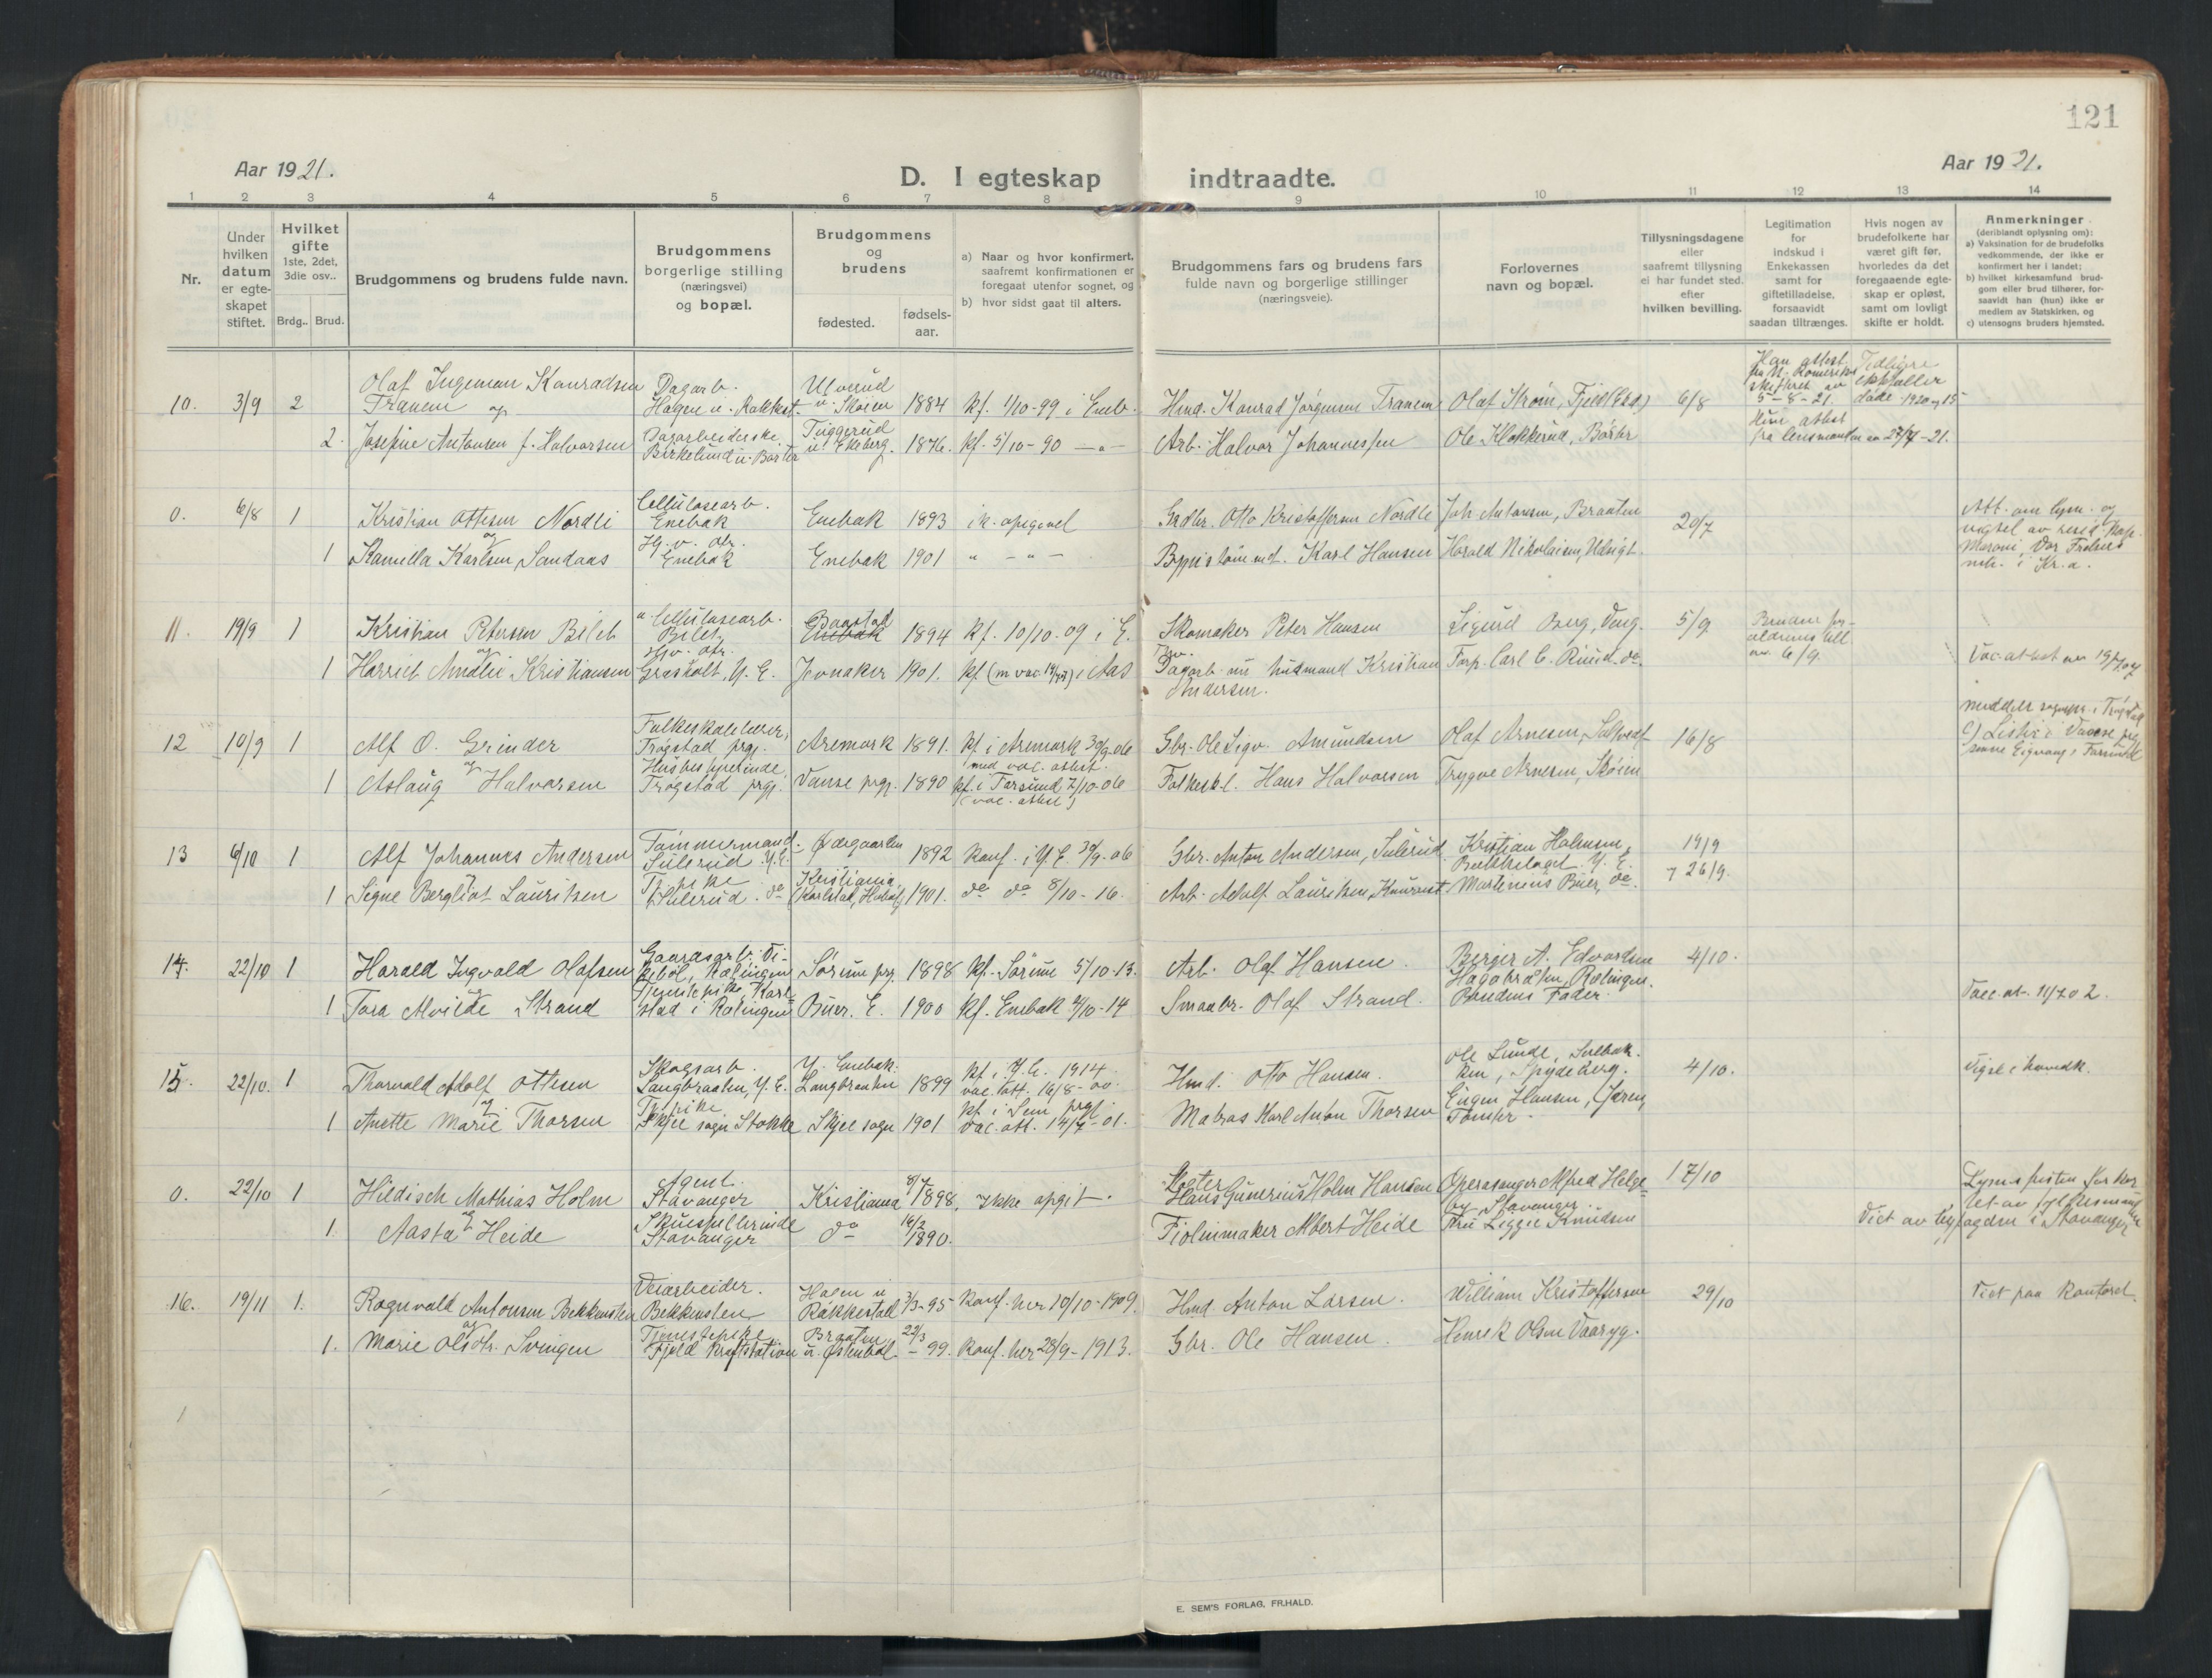 121
Aar 1921.
D. I egteskap indtraadte.
Aar 1921.
1 2 3 4 5 6 7 8 9 10 11 12 13 14
Nr.
Under hvilken datum er egteskapet stiftet.
Hvilket gifte 1ste, 2det, 3die osv..
Brdg.. Brud.
Brudgommens og brudens fulde navn.
Brudgommens borgerlige stilling (næringsvei) og bopæl.
Brudgommens og brudens
fødested.
fødselsaar.
a) Naar og hvor konfirmert, saafremt konfirmationen er foregaat utenfor sognet, og
b) hvor sidst gaat til alters.
Brudgommens fars og brudens fars fulde navn og borgerlige stillinger (næringsveie).
Forlovernes navn og bopæl.
Tillysningsdagene eller saafremt tillysning ei har fundet sted. efter hvilken bevilling.
Legitimation for indskud i Enkekassen samt for giftetilladelse, forsaavidt saadan tiltrænges.
Hvis nogen av brudefolkene har været gift før, hvorledes da det foregaaende egteskap er opløst, samt om lovligt skifte er holdt.
Anmerkninger (deriblandt oplysning om):
a) Vaksination for de brudefolks vedkommende, der ikke er konfirmert her i landet;
b) hvilket kirkesamfund brudgom eller brud tilhører, forsaavidt han (hun) ikke er medlem av Statskirken, og
c) utensogns bruders hjemsted.
10. 3/9 2 Olaf Ingeman Konradsen Tranem og Dagarb. Hagen u. Rakkest. Ulverud u. Skøien 1884 kf. 1/10-99 i Eneb. Hmd. Konrad Jørgensen Tranem Olaf Strøm, Fjell 6/8 Han attest fra N. Romerikes skifteret av 5-8-21. Tidligere ektefæller døde 1920 og 15
2. Josefine Antonsen f. Halvorsen Dagarbeiderske. Birkelund u. Børter Tuggerud u. Ekeberg. 1876. kf. 5/10-90 — " — Arb. Halvor Johannessen Ole Klokkerud, Børter Hun attest fra lensmanden av 27/7-21.
0. 6/8 1 Kristian Ottesen Nordli og Cellulosearb. Enebak Enebak 1893 ik. opgivet Grdbr. Otto Kristoffersen Nordli Joh Antonsen, Braaten 20/7 Att. om lysn. og vigsel av resid. kap. Maroni, Vor Frelsers mh. i Kr.a.
1 Kamilla Karlsen Sandaas Hj. v. dtr. Enebak Enebak 1901 " - " - Karl Hansen Harald Nikolaisen, Udsigt.
11. 19/9 1 Kristian Petersen Bilet og Cellulosearb. Bilet Baastad Enebak 1894 kf. 10/10.09 i E. Skomaker Peter Hansen Sigurd Berg, Veng. 5/9 6/9.
1 Harriet Amalie Kristiansen Hjv. dtr. Græsholt, Y. E. Jevnaker 1901. kf (m vac. 19/7 07) i Aas Dagarb nu husmand Kristian Andersen. Torp. Carl C. Ruud do. Vac. attest av 19/7 07
12 10/9 1 Alf O. Grinder og Folkeskolelærer, Trøgstad prgj. Aremark 1891. kf i Aremark 30/9-06 med vac. attest. Gbr. Ole Sigv. Amundsen Olaf Arnesen, 16/8 meddelt sognepr. i Trøgstad c) Lista i Vanse prg
1 Aslaug Halvorsen Husbestyrerinde, Trøgstad prgj. Vanse prgj. 1890 kf. i Farsund 7/10-06 (vac. attest) Folkesk.l. Hans Halvorsen Trygve Arnesen, Skøien
13 6/10 1 Alf Johannes Andersen og Tømmermand. Sulerud Y.E. Ødegaarden 1892 Konf. i Y. E. 30/9-06 Gbr. Anton Andersen, Sulerud Kristian Holmsen, Bækkelaget. Y. E. 19/9
1 Signe Bergliot Lauritsen Tj. pike Sulerud. do Kristiania (Karlstad, Hobøl) 1901. do do 8/10-16. Arb. Adolf Lauritsen, Knurvest Martinius Buer, do. 26/9.
14. 22/10 1 Harald Ingvald Olafsen og Gaardsarb. Rælingen Sørum prg. 1898 kf. Sørum 5/10-13. Arb. Olaf Hansen. Berger A. Edvardsen Hagabraaten, Rælingen. 4/10.
1 Tora Alvilde Strand Tjenstepike, Karlstad i Rælingen Buer. E. 1900 kf. Enebak 4/10-14 Smaabr. Olaf Strand. Brudens Fader. Vacc. at. 11/7 02.
15. 22/10. 1 Thorvald Adolf Ottesen og Skogsarb. Langbraaten, Y. E. Y. Enebak. Langbraaten 1899 kf. i Y. E. 1914. vac. att. 16/8-00. Hmd. Otto Hansen. Ole Lunde, Spydeberg. 4/10. Vigsl i hovedk.
1 Anette Marie Thorsen Tj. pike Skjee sogn Stokke Skjee sogn 1901 kf. i Sem prgj. vac. att. 14/7-01. Matros Karl Anton Thorsen Eugen Hansen, Jaren, Tomter.
0. 22/10 1 Hildisch Mathias Holm og Agent. Stavanger Kristiania 8/7 1898. Ikke opgit. Hans Gunerius Holm Hansen Operasanger Alfred Helgeby Stavanger 17/10
1. Aasta Heide Skuespillerinde Stavanger do 16/2 1890. Fiolinmaker Albert Heide Fru Ligger Knudsen Viet av byfogden i Stavanger
16. 19/11 1. Ragnvald Antonsen Bekkensten og Veiarbeider. Bekkensten Hagen u Rakkestad 7/3-95 Konf. her 10/10-1909. Hmd. Anton Larsen. William Kristoffersen 29/10 Viet paa kontoret.
1. Marie Olsdtr. Svingen Tjenestepike. Fjeld Krafstation Braaten u. Østenbøl. 22/3 - 99. Konf. her 28/9-1913. Gbr. Ole Hansen. Henrik Olsen Vaaryg.
E. SEM'S FORLAG, FR.HALD.